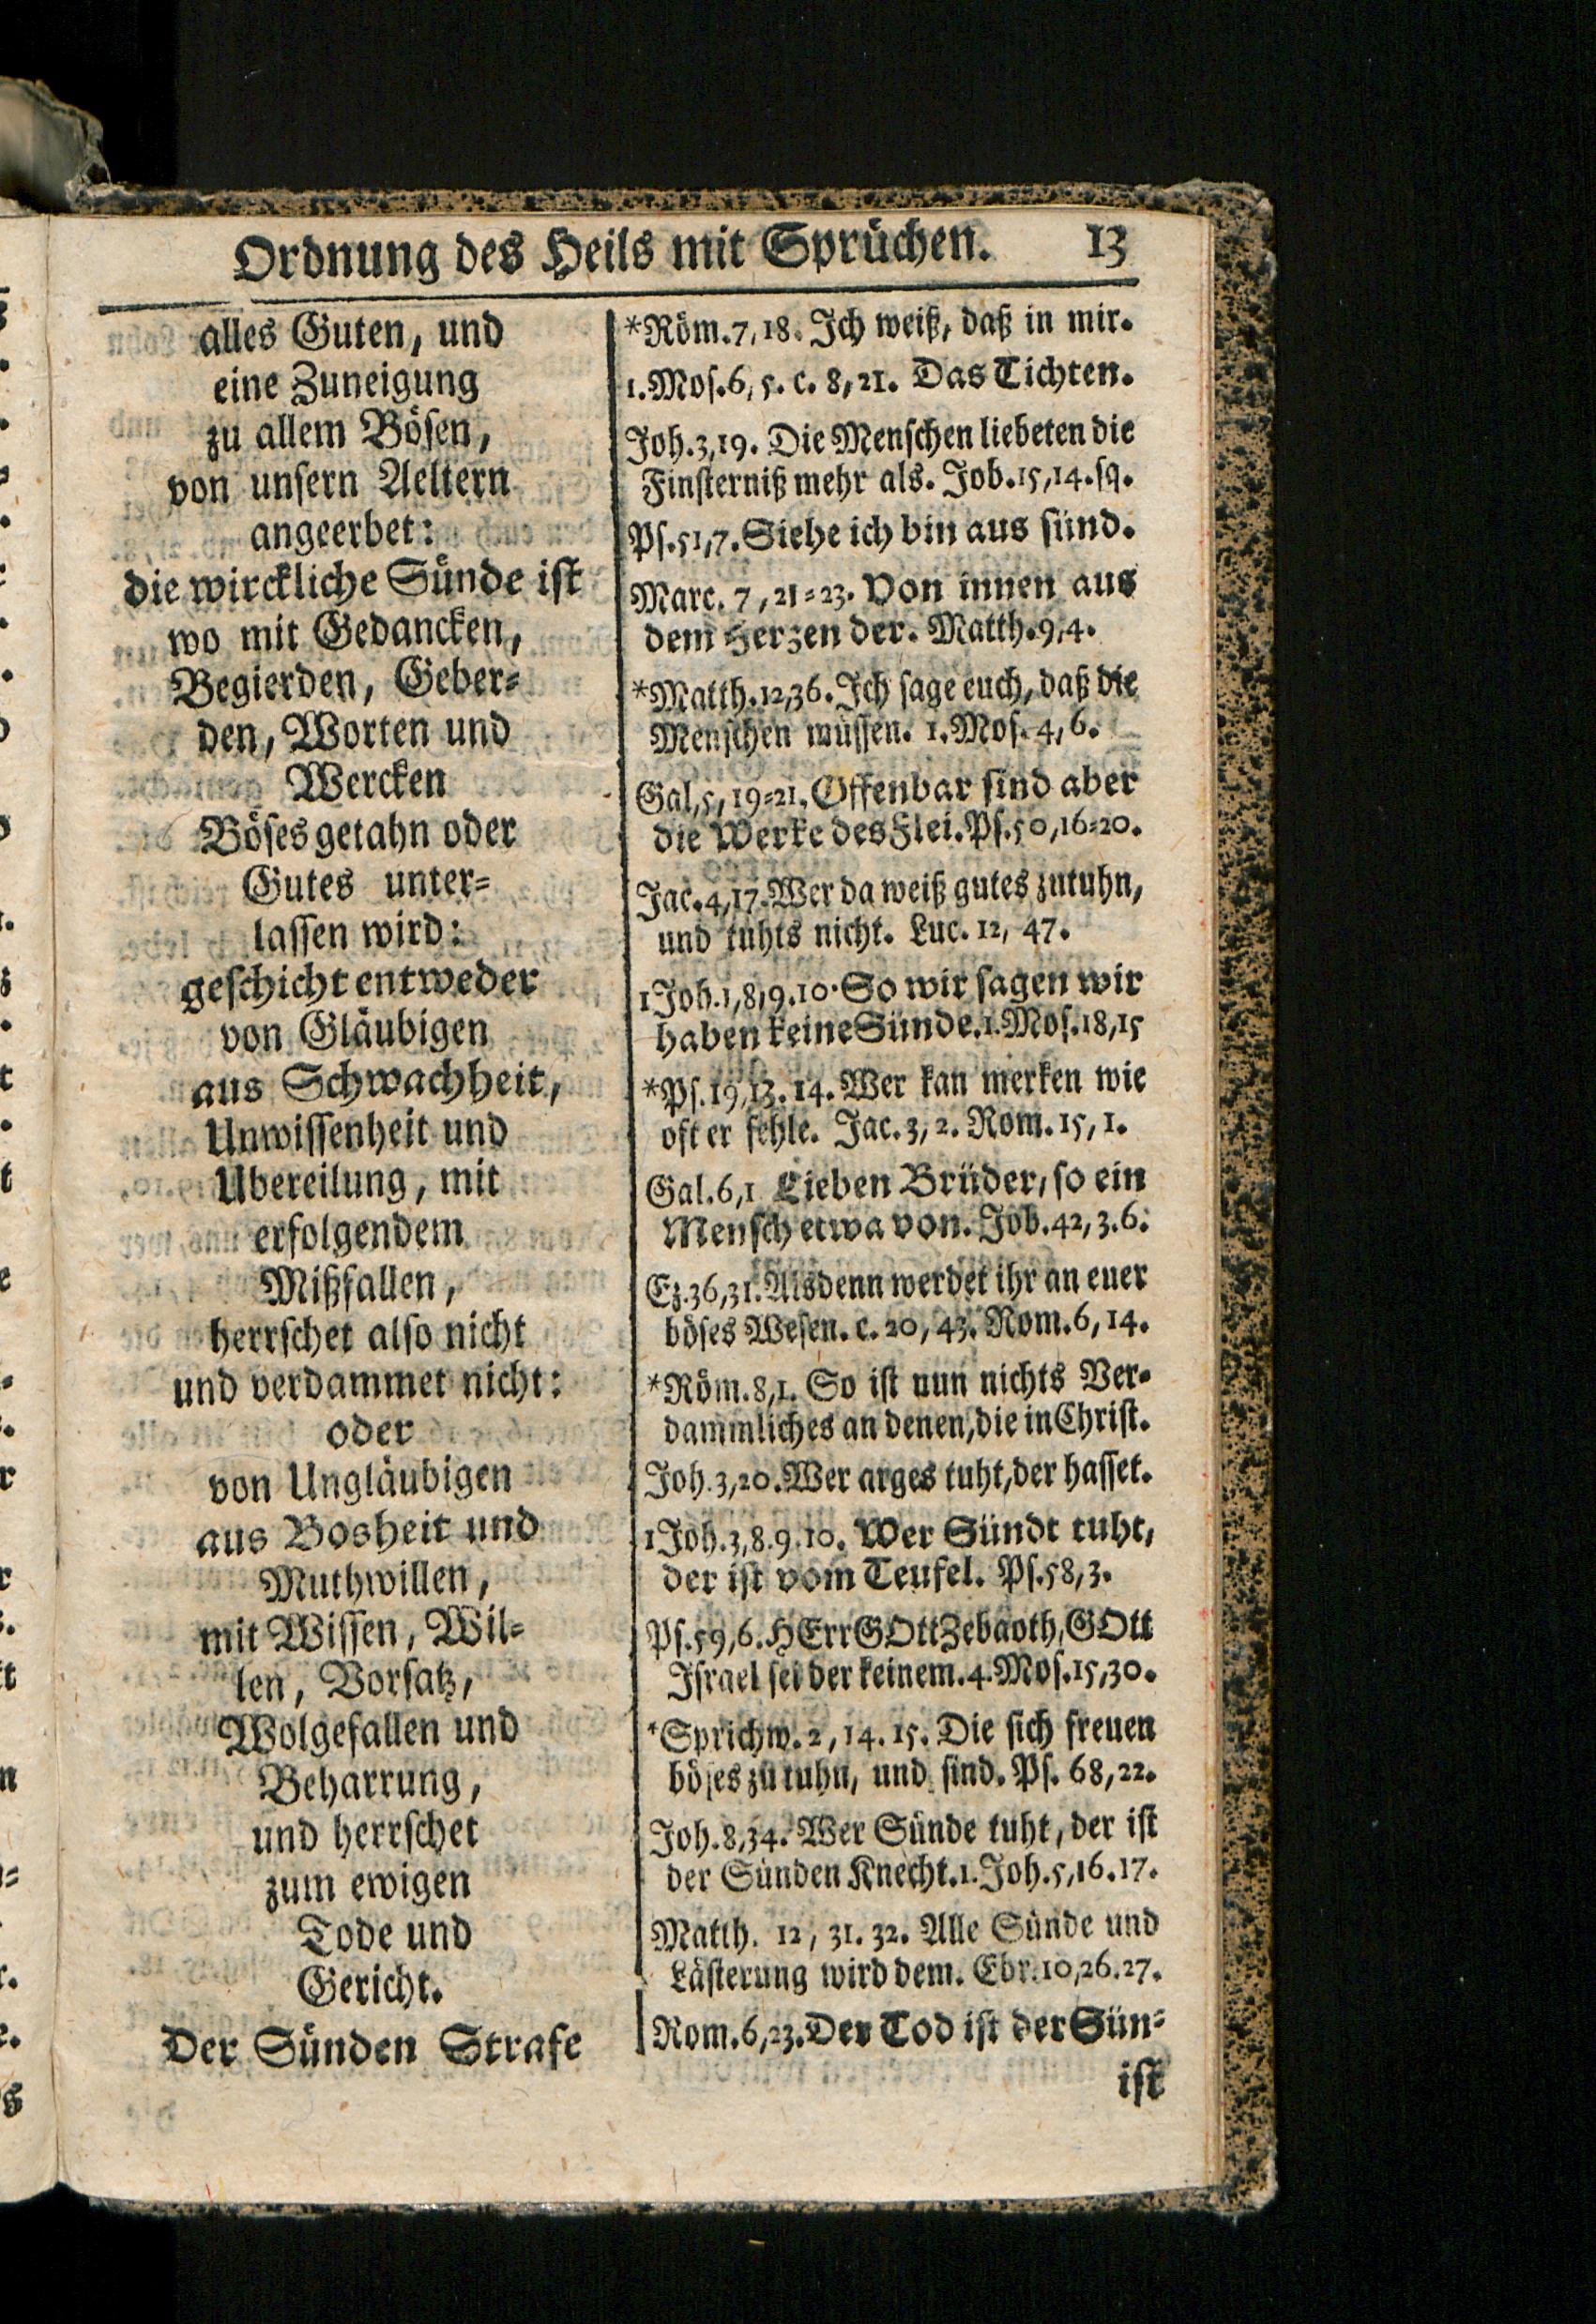 Ordnung des Heils mit Sprüchen. 13
alles Guten, und
eine Zuneigung
zu allem Bösen,
von unsern Aeltern
angeerbet:
die wirckliche Sünde ist
wo mit Gedancken,
Begierden, Geber=
den, Worten und
Wercken
Böses getahn oder
Gutes unter=
lassen wird:
geschicht entweder
von Gläubigen
aus Schwachheit,
Unwissenheit und
Ubereilung, mit
erfolgendem
Mißfallen,
herrschet also nicht
und verdammet nicht:
oder
von Ungläubigen
aus Bosheit und
Muthwillen,
mit Wissen, Wil=
len, Vorsatz,
Wolgefallen und
Beharrung,
und herrschet
zum ewigen
Tode und
Gericht.
Der Sünden Strafe
*Röm.7,18. Ich weiß, daß in mir.
1.Mos.6,5. c. 8,21. Das Tichten.
Joh.3,19. Die Menschen liebeten die
Finsterniß mehr als. Job.15,14.sq.
Ps.51,7. Siehe ich bin aus sünd.
Marc. 7,21=23. Von innen aus
dem Herzen der. Matth.9,4.
*Matth.12,36. Ich sage euch, daß die
Menschen müssen. 1.Mos.4,6.
Gal,5,19=21. Offenbar sind aber
die Werke des Flei. Ps.50,16=20.
Jac.4,17. Wer da weiß gutes zutuhn,
und tuhts nicht. Luc. 12, 47.
1Joh.1,8,9.10. So wir sagen wir
haben keine Sünde. 1.Mos.18,15
*Ps.19,13.14. Wer kan merken wie
oft er fehle. Jac.3,2. Rom.15,1.
Gal.6,1 Lieben Brüder, so ein
Mensch etwa von. Job.42,3.6.
Ez.36,31. Alsdenn werdet ihr an euer
böses Wesen. c.20,43. Rom.6,14.
*Röm.8,1. So ist nun nichts Ver=
dammliches an denen, die in Christ.
Joh.3,20. Wer arges tuht, der hasset.
1Joh.3,8.9.10. Wer Sündt tuht,
der ist vom Teufel. Ps.58,3.
Ps.59,6. HErr GOtt Zebaoth, GOtt
Israel sei der keinem. 4.Mos.15,30.
*Sprichw.2,14.15. Die sich freuen
böses zu tuhn, und sind. Ps. 68,22.
Joh.8,34. Wer Sünde tuht, der ist
der Sünden Knecht. 1.Joh.5,16.17.
Matth. 12, 31. 32. Alle Sünde und
Lästerung wird dem. Ebr.10,26.27.
Rom.6,23. Der Tod ist der Sün=
ist